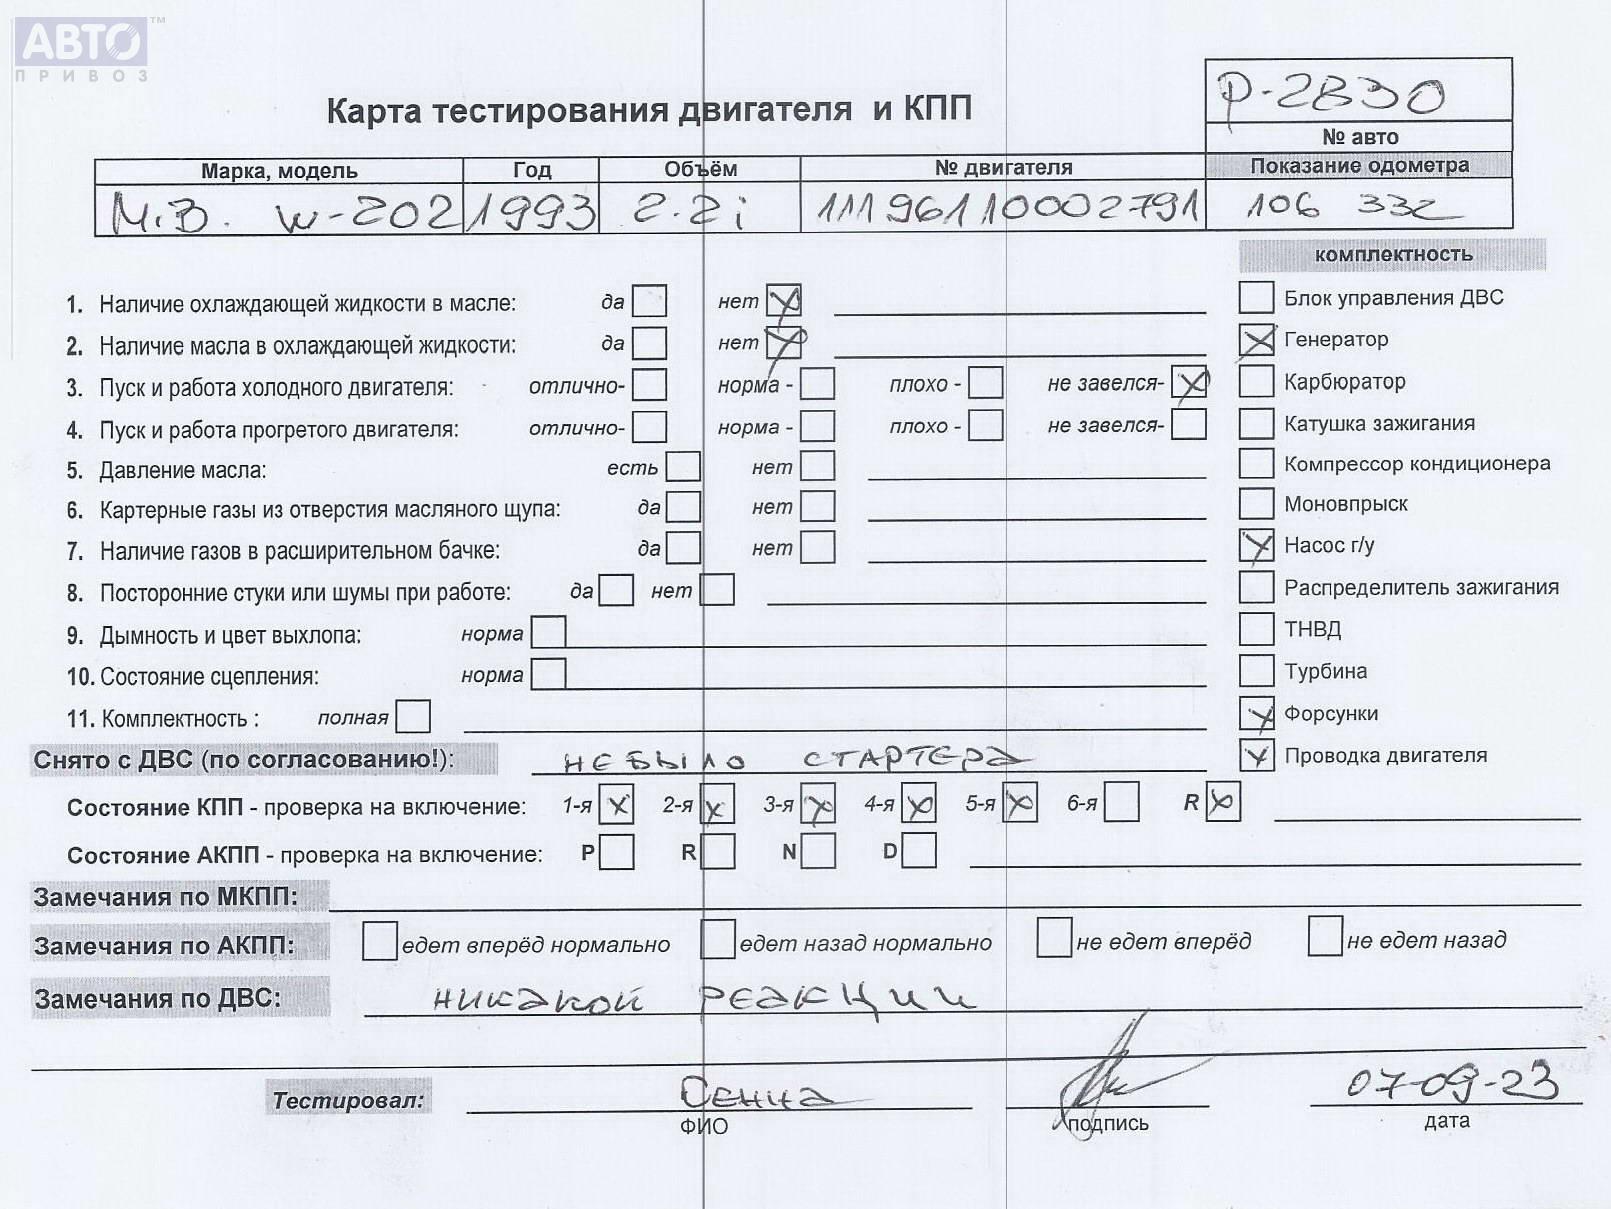 АВТО™
ПРИВОЗ
Р-2830
Карта тестирования двигателя и КПП
№ авто
Марка, модель Год Объём № двигателя Показание одометра
М.В. W-202 1993 2.2i 11196110002791 106 332
комплектность
1. Наличие охлаждающей жидкости в масле: да нет X Блок управления ДВС
2. Наличие масла в охлаждающей жидкости: да нет X X Генератор
3. Пуск и работа холодного двигателя: отлично- норма - плохо - не завелся- X Карбюратор
4. Пуск и работа прогретого двигателя: отлично- норма - плохо - не завелся- Катушка зажигания
5. Давление масла: есть нет Компрессор кондиционера
6. Картерные газы из отверстия масляного щупа: да нет Моновпрыск
7. Наличие газов в расширительном бачке: да нет X Насос г/у
8. Посторонние стуки или шумы при работе: да нет Распределитель зажигания
9. Дымность и цвет выхлопа: норма ТНВД
10. Состояние сцепления: норма Турбина
11. Комплектность : полная X Форсунки
Снято с ДВС (по согласованию!): НЕ БЫЛО СТАРТЕРА X Проводка двигателя
Состояние КПП - проверка на включение: 1-я X 2-я X 3-я X 4-я X 5-я X 6-я R X
Состояние АКПП - проверка на включение: P R N D
Замечания по МКПП:
Замечания по АКПП: едет вперёд нормально едет назад нормально не едет вперёд не едет назад
Замечания по ДВС: НИКАКОЙ РЕАКЦИИ
Тестировал: Сенца 07-09-23
ФИО подпись дата